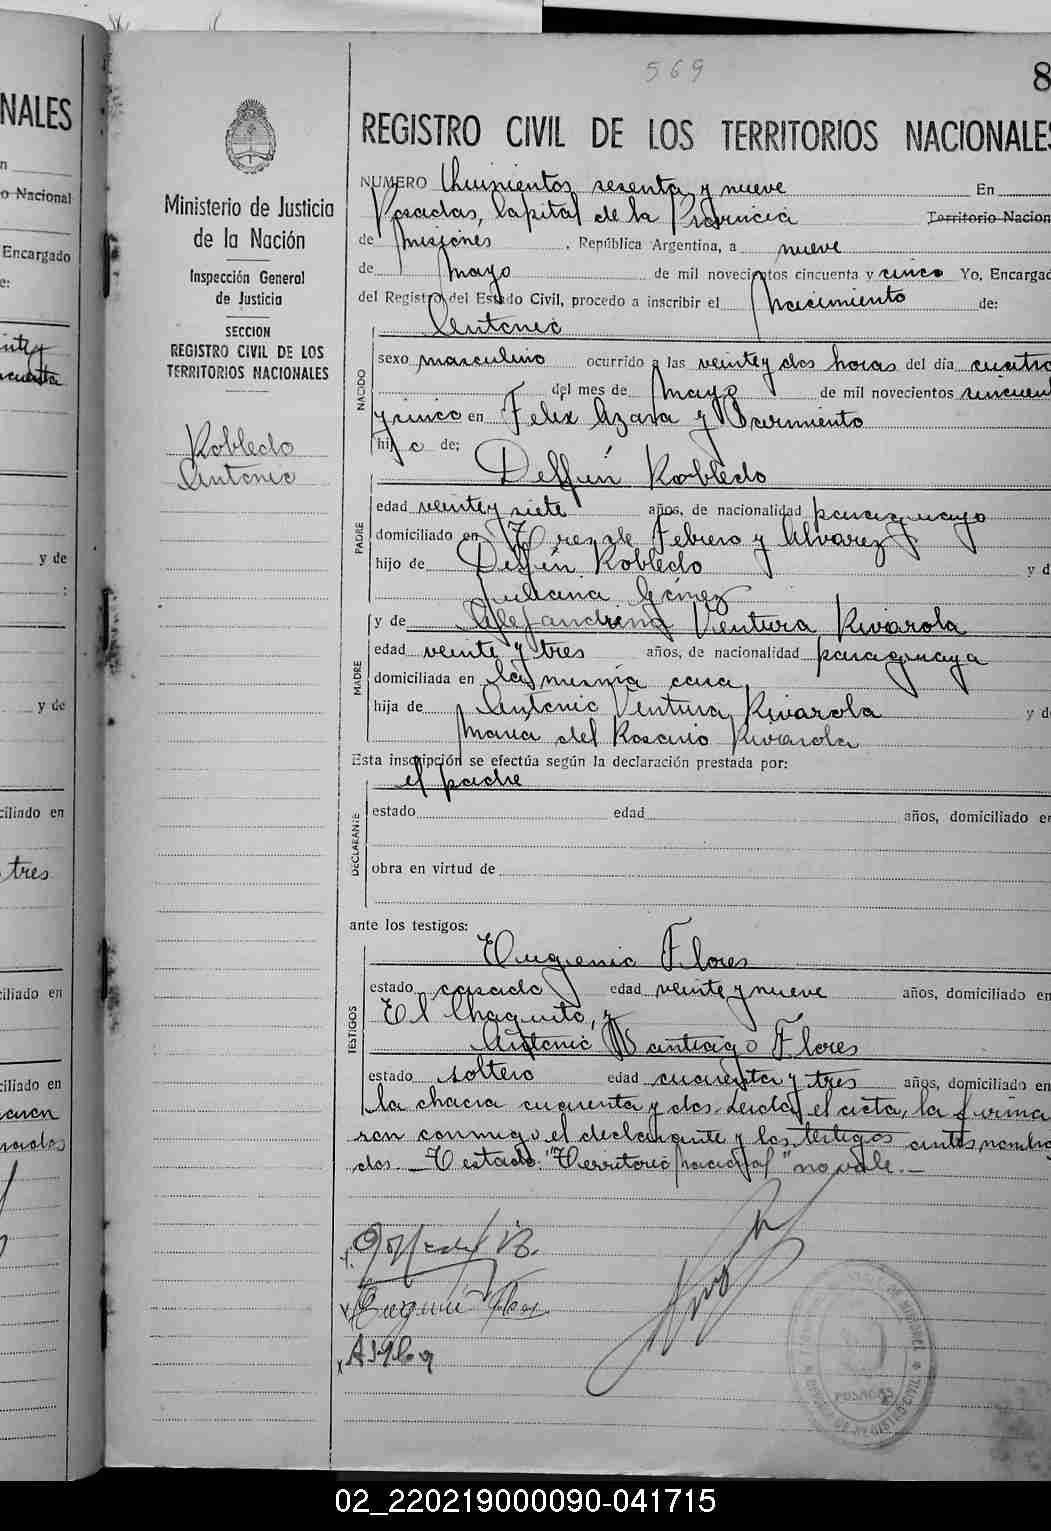 569
8
NALES
REGISTRO CIVIL DE LOS TERRITORIOS NACIONALES
Ministerio de Justicia
de la Nación
Inspección General
de Justicia
SECCION
REGISTRO CIVIL DE LOS
TERRITORIOS NACIONALES
Robledo
Antonio
NUMERO Quinientos sesenta y nueve En
Posadas, Capital de la Provincia Territorio Nacion
de Misiones, República Argentina, a nueve
de mayo de mil novecientos cincuenta y cinco Yo, Encargad
del Registro del Estado Civil, procedo a inscribir el Nacimiento de:
Antonio
NACIDO
sexo masculino ocurrido a las veinte y dos horas del día cuatro
del mes de Mayo de mil novecientos cincuen
y cinco en Felix Azara y Sarmiento
hijo de:
PADRE
Delfín Robledo
edad veinte y siete años, de nacionalidad paraguayo
domiciliado en Tres de Febrero y Alvarez
hijo de Delfín Robledo y d
Juliana Gómez
MADRE
y de Alejandrina Ventura Rivarola
edad veinte y tres años, de nacionalidad paraguaya
domiciliada en la misma casa
hija de Antonio Ventura Rivarola y d
María del Rosario Rivarola
Esta inscripción se efectúa según la declaración prestada por:
el padre
DECLARANTE
estado edad años, domiciliado en
obra en virtud de
ante los testigos:
TESTIGOS
Eugenio Flores
estado casado edad veinte y nueve años, domiciliado en
El Chaquito, y
Antonio Santiago Flores
estado soltero edad cuarenta y tres años, domiciliado en
la chacra cuarenta y dos. Leida el acta, la firma
ron conmigo el declarante y los testigos antes nombra
dos. _ Testado: "Territorio nacional" no vale. _
Eugenio Flores
POSADAS
n
o Nacional
Encargado
e:
y de
:
y de
ciliado en
tres
ciliado en
ciliado en
02_220219000090-041715